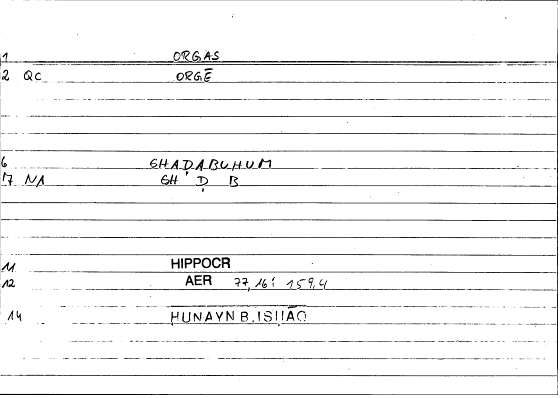 1 ORGAS
2 QC ORGĒ
6 GHAḌABUHUM
7 NA GH Ḍ B
11 HIPPOCR
12 AER 77,16: 159,4
14 HUNAYN B. ISḤĀQ